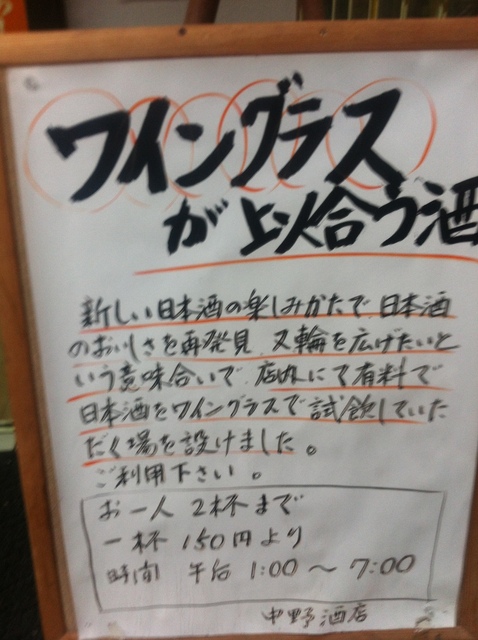 ワイングラス
が似合う酒
新しい日本酒の楽しみかたで、日本酒
のおいしさを再発見、又輪を広げたいと
いう意味合いで、店内にて有料で
日本酒をワイングラスで試飲していた
だく場を設けました。
ご利用下さい。
お一人 2杯まで
一杯 150円より
時間 午后 1:00～7:00
中野酒店